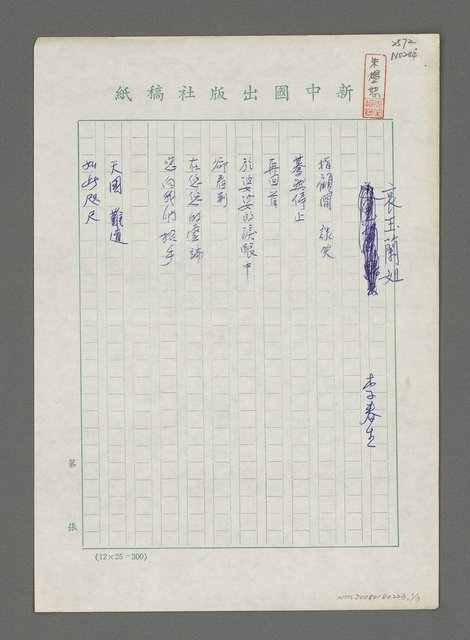 2572
N0244
朱學恕
新中國出版社稿紙
哀玉蘭姐
李春生
指顧間 談笑
驀然停止
再回首
於婆娑的淚眼中
卻看到
在悠悠的雲端
您向我們招手
天國 難道
如此咫尺
第 張
(12×25=300)
NMTL20080180223, 1/3